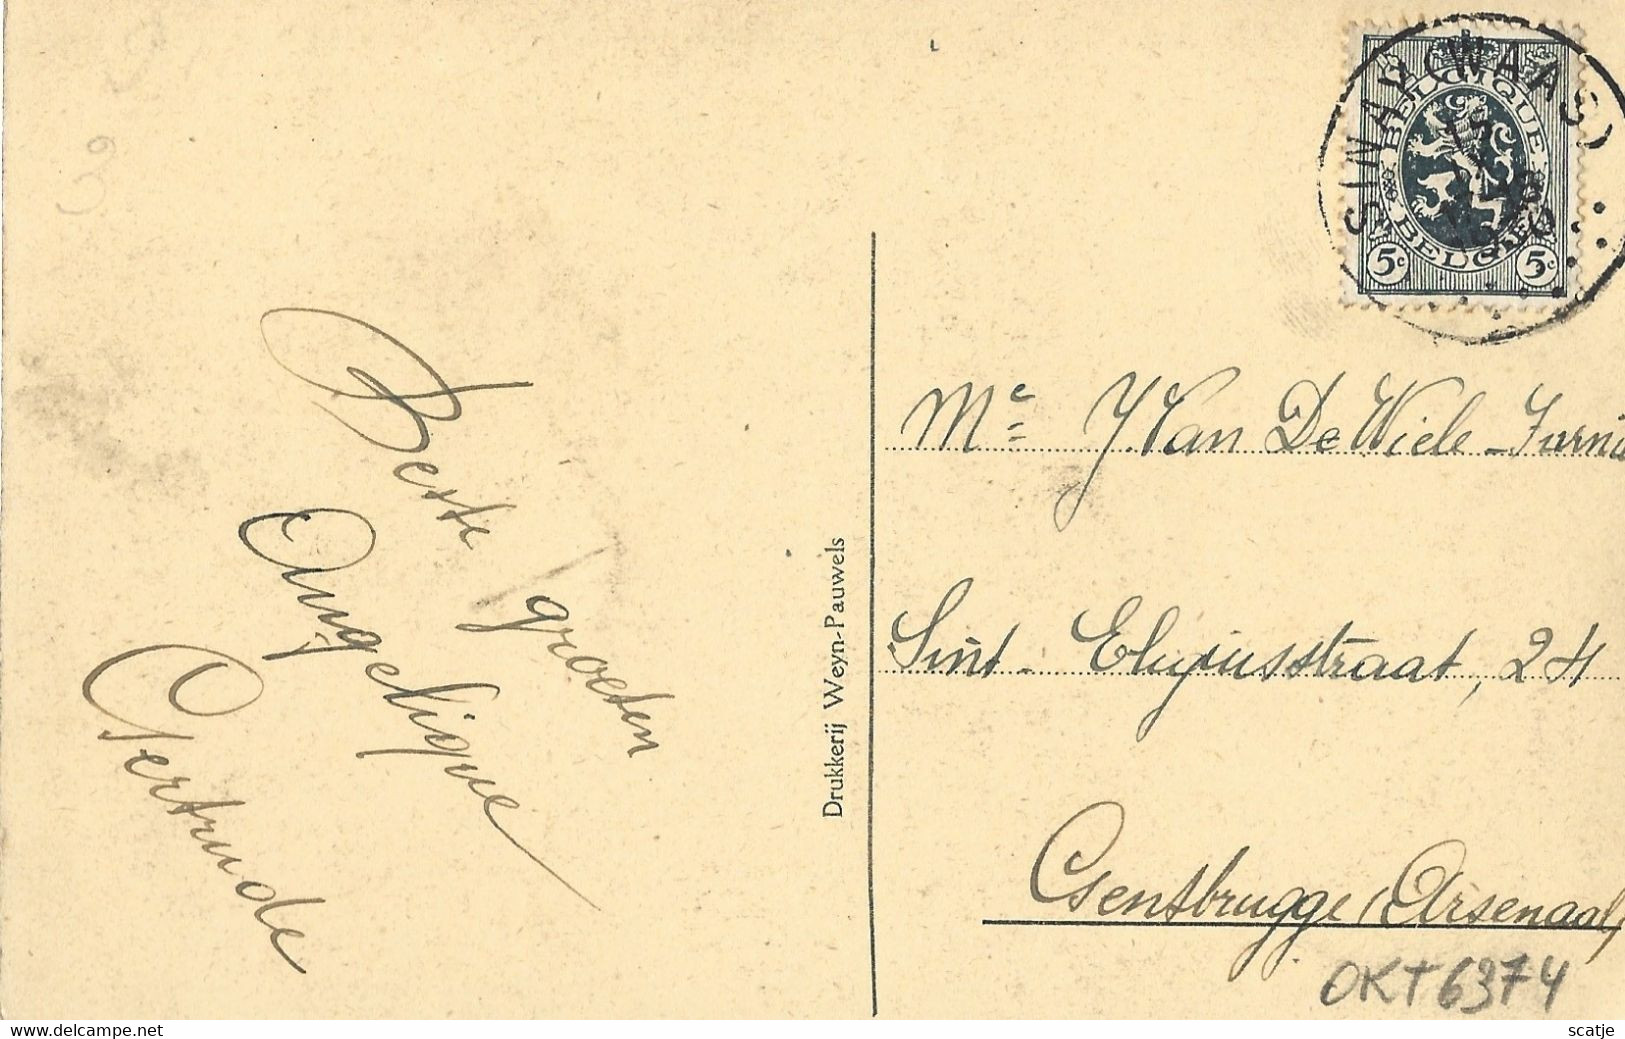 SINAY (WAAS)
BELGIQUE
BELGIE
5c 5c
Beste groeten
Angelique
Gertrude
Drukkerij Weyn-Pauwels
Me J. Van De Wiele-
Sint Eligiusstraat, 24
Gentbrugge (Arsenaal)
OKT 6374
delcampe.net
scatje